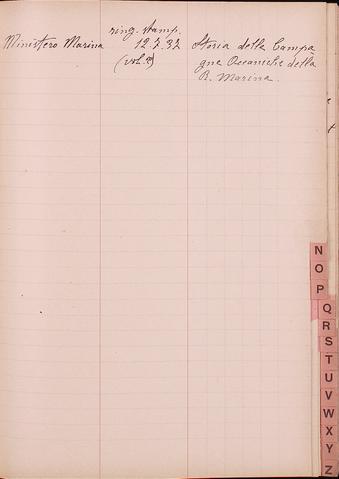 Ministero Marina
ring. stamp.
12.7.32
(vol. 2)
Storia della Campa
gne Oceaniche della
R. Marina.
N
O
P
Q
R
S
T
U
V
W
X
Y
Z